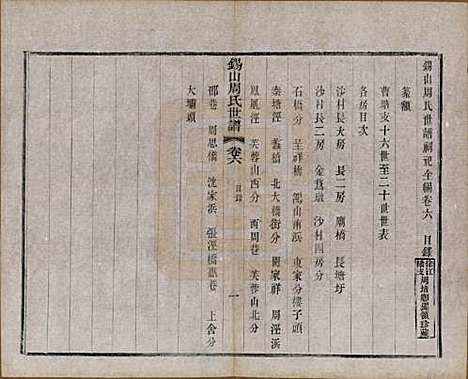 錫山周氏世譜祠祀全編卷六 目錄
篆額
曹塘支十六世至二十世世表
各房目次
沙村長大房 長二房 廟橋 長塘圩
沙村三房 金雋墩 沙村四房分
石橋分 呈祥橋 鴻山南浜 東家分樓子頭
秦塘涇 蠡橋 北大橋街分 周家祥 周涇浜
鳳凰涇 芙蓉山西分 西周巷 芙蓉山北分
錫山周氏世譜 卷六 目錄 一
邵巷 周思橋 沈家浜 張涇橋惠巷 上舍分
大壩頭